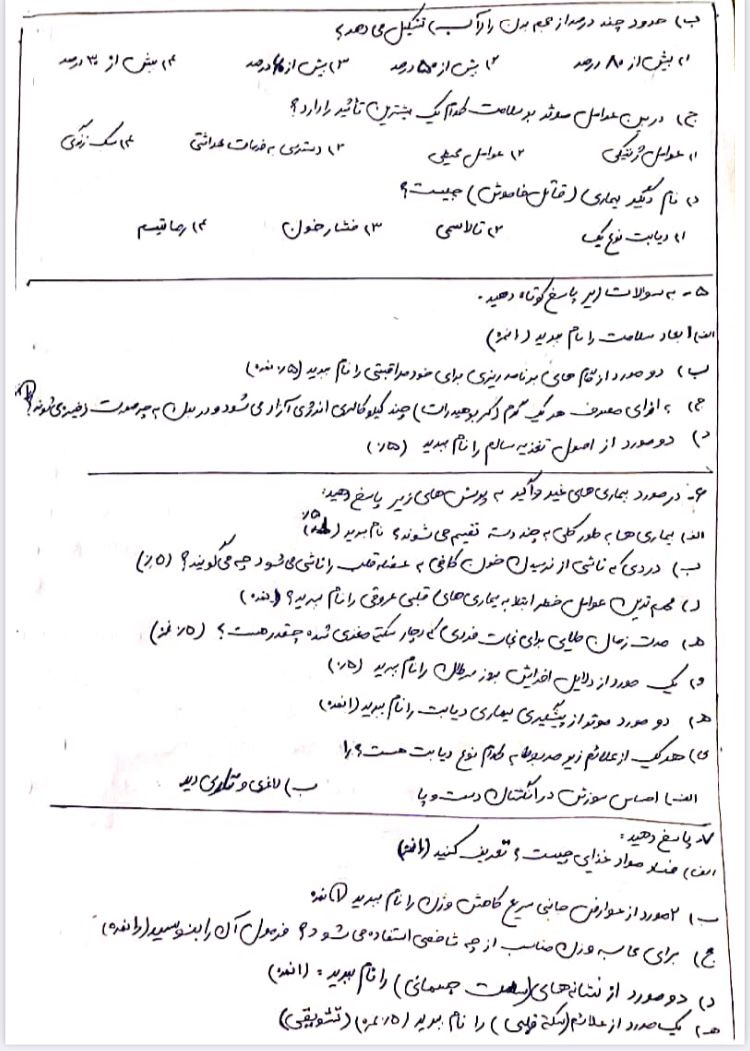 ب) حدود چند درصد از حجم بدن را (آب) تشکیل می دهد؟
۱) بیش از ۸۰ درصد ۲) بیش از ۵۰ درصد ۳) بیش از ۶۰ درصد ۴) بیش از ۳۰ درصد
ج) در بین عوامل موثر بر سلامت کدام یک بیشترین تاثیر را دارد؟
۱) عوامل ژنتیکی ۲) عوامل محیطی ۳) دسترسی به خدمات بهداشتی ۴) سبک زندگی
د) نام دیگر بیماری (قاتل خاموش) چیست؟
۱) دیابت نوع یک ۲) تالاسمی ۳) فشار خون ۴) رماتیسم
۵- به سوالات زیر پاسخ کوتاه دهید.
الف) ابعاد سلامت را نام ببرید (۱ نمره)
ب) دو مورد از گام های برنامه ریزی برای خودمراقبتی را نام ببرید (۵٪ نمره)
ج) به ازای مصرف هر یک گرم (کربوهیدرات) چند کیلوکالری انرژی آزاد می شود و در بدن به چه صورت ذخیره می شوند؟ ۱
د) دو مورد از اصول تغذیه سالم را نام ببرید (۵٪)
۶- در مورد بیماری های غیر واگیر به پرسش های زیر پاسخ دهید:
الف) بیماری ها به طور کلی به چند دسته تقسیم می شوند؟ نام ببرید ۵٪
ب) دردی که ناشی از نرسیدن خون کافی به عضله قلب را ناشی می شود چه می گویند؟ (۵٪)
د) مهم ترین عوامل خطر ابتلا به بیماری های قلبی عروقی را نام ببرید؟ (نمره)
ه) مدت زمان طلایی برای نجات فردی که دچار سکته مغزی شده چقدر هست؟ (۵٪ نمره)
و) یک مورد از دلایل افزایش بروز سرطان را نام ببرید (۵٪)
ه) دو مورد موثر از پیشگیری بیماری دیابت را نام ببرید (۱ نمره)
ی) هر یک از علائم زیر مربوط به کدام نوع دیابت هست؟ (۱
الف) احساس سوزش در انگشتان دست و پا ب) لاغری و تاری دید
۷- پاسخ دهید:
الف) فساد مواد غذایی چیست؟ تعریف کنید (۱ نمره)
ب) ۲ مورد از عوارض جانبی سریع کاهش وزن را نام ببرید ۱ نمره
ج) برای محاسبه وزن مناسب از چه شاخصی استفاده می شود؟ فرمول آن را بنویسید (۱ نمره)
د) دو مورد از نشانه های (سلامت جسمانی) را نام ببرید: (۱ نمره)
ه) یک مورد از علائم (سکته قلبی) را نام ببرید (۵٪ نمره) (تشویقی)